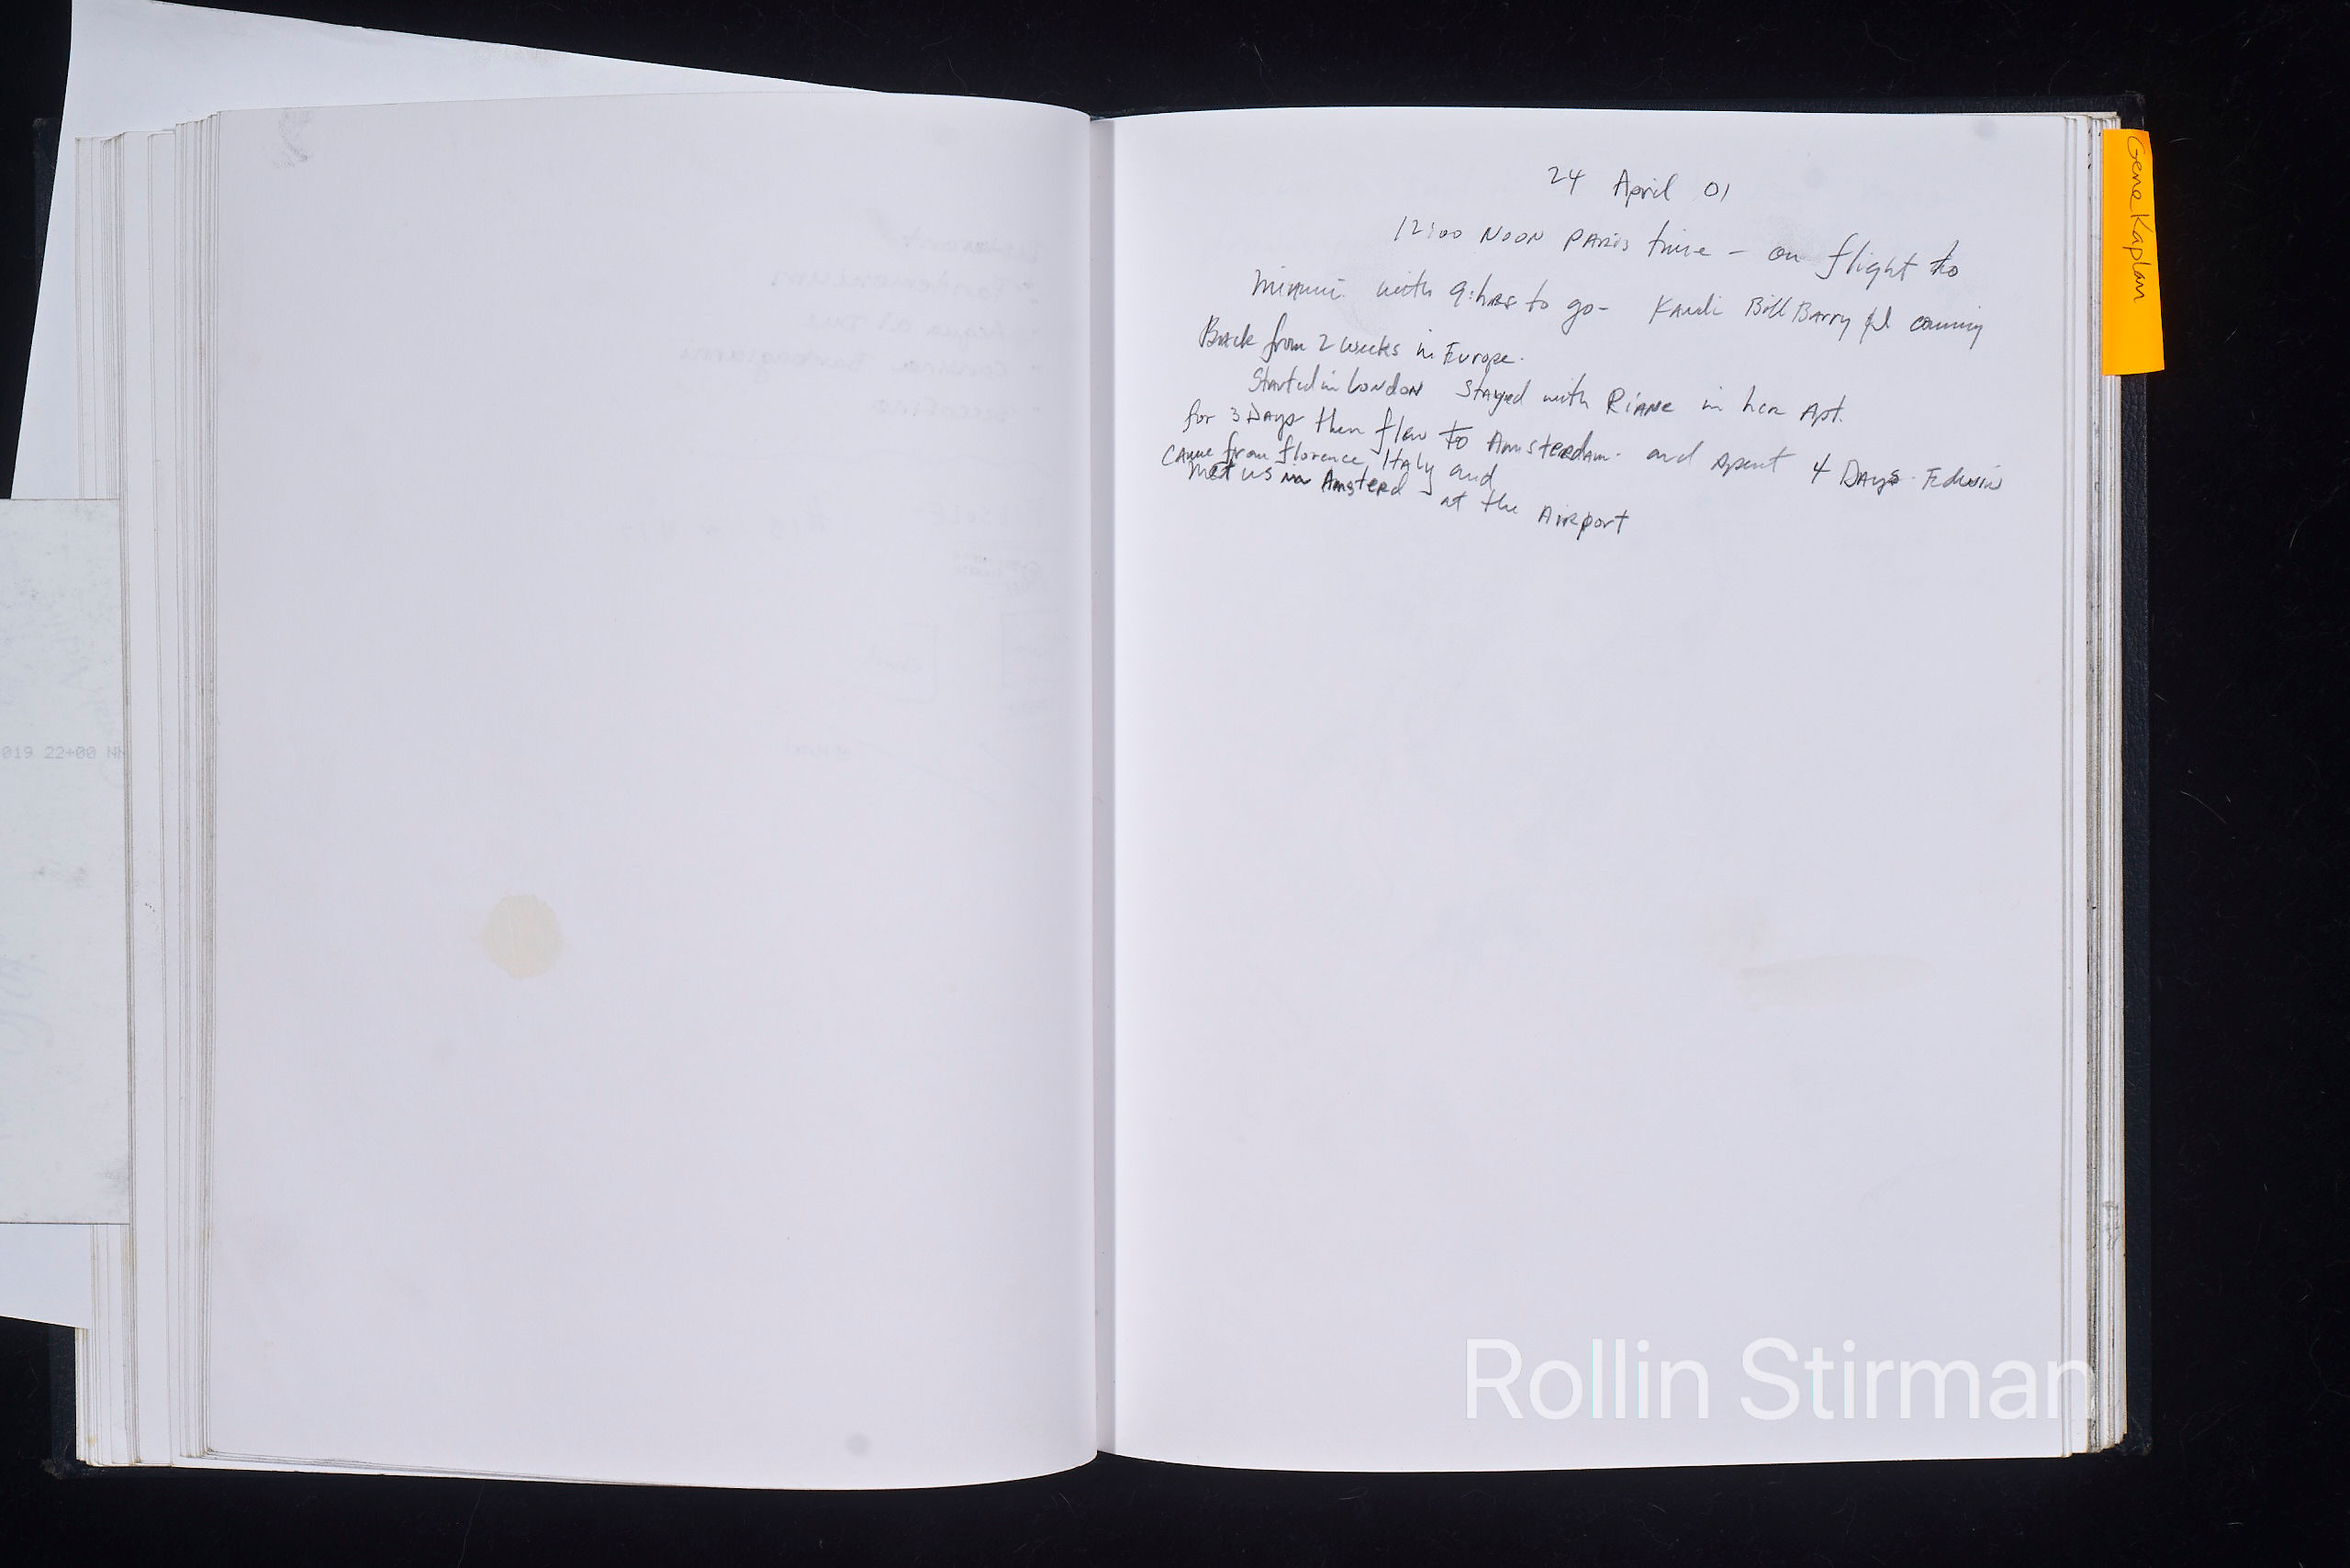 24 April 01
12:00 NOON PARIS time – on flight to
Miami with 9:hrs to go – Bill Barry coming
Back from 2 weeks in Europe.
Started in LONDON Stayed with RiANE in her Apt.
for 3 DAYS then flew to Amsterdam. and spent 4 DAYS. Edwin
CAME from florence, Italy and
Met us in Amsterd at the AiRport
Gene Kaplan
019 22+00
Rollin Stirman